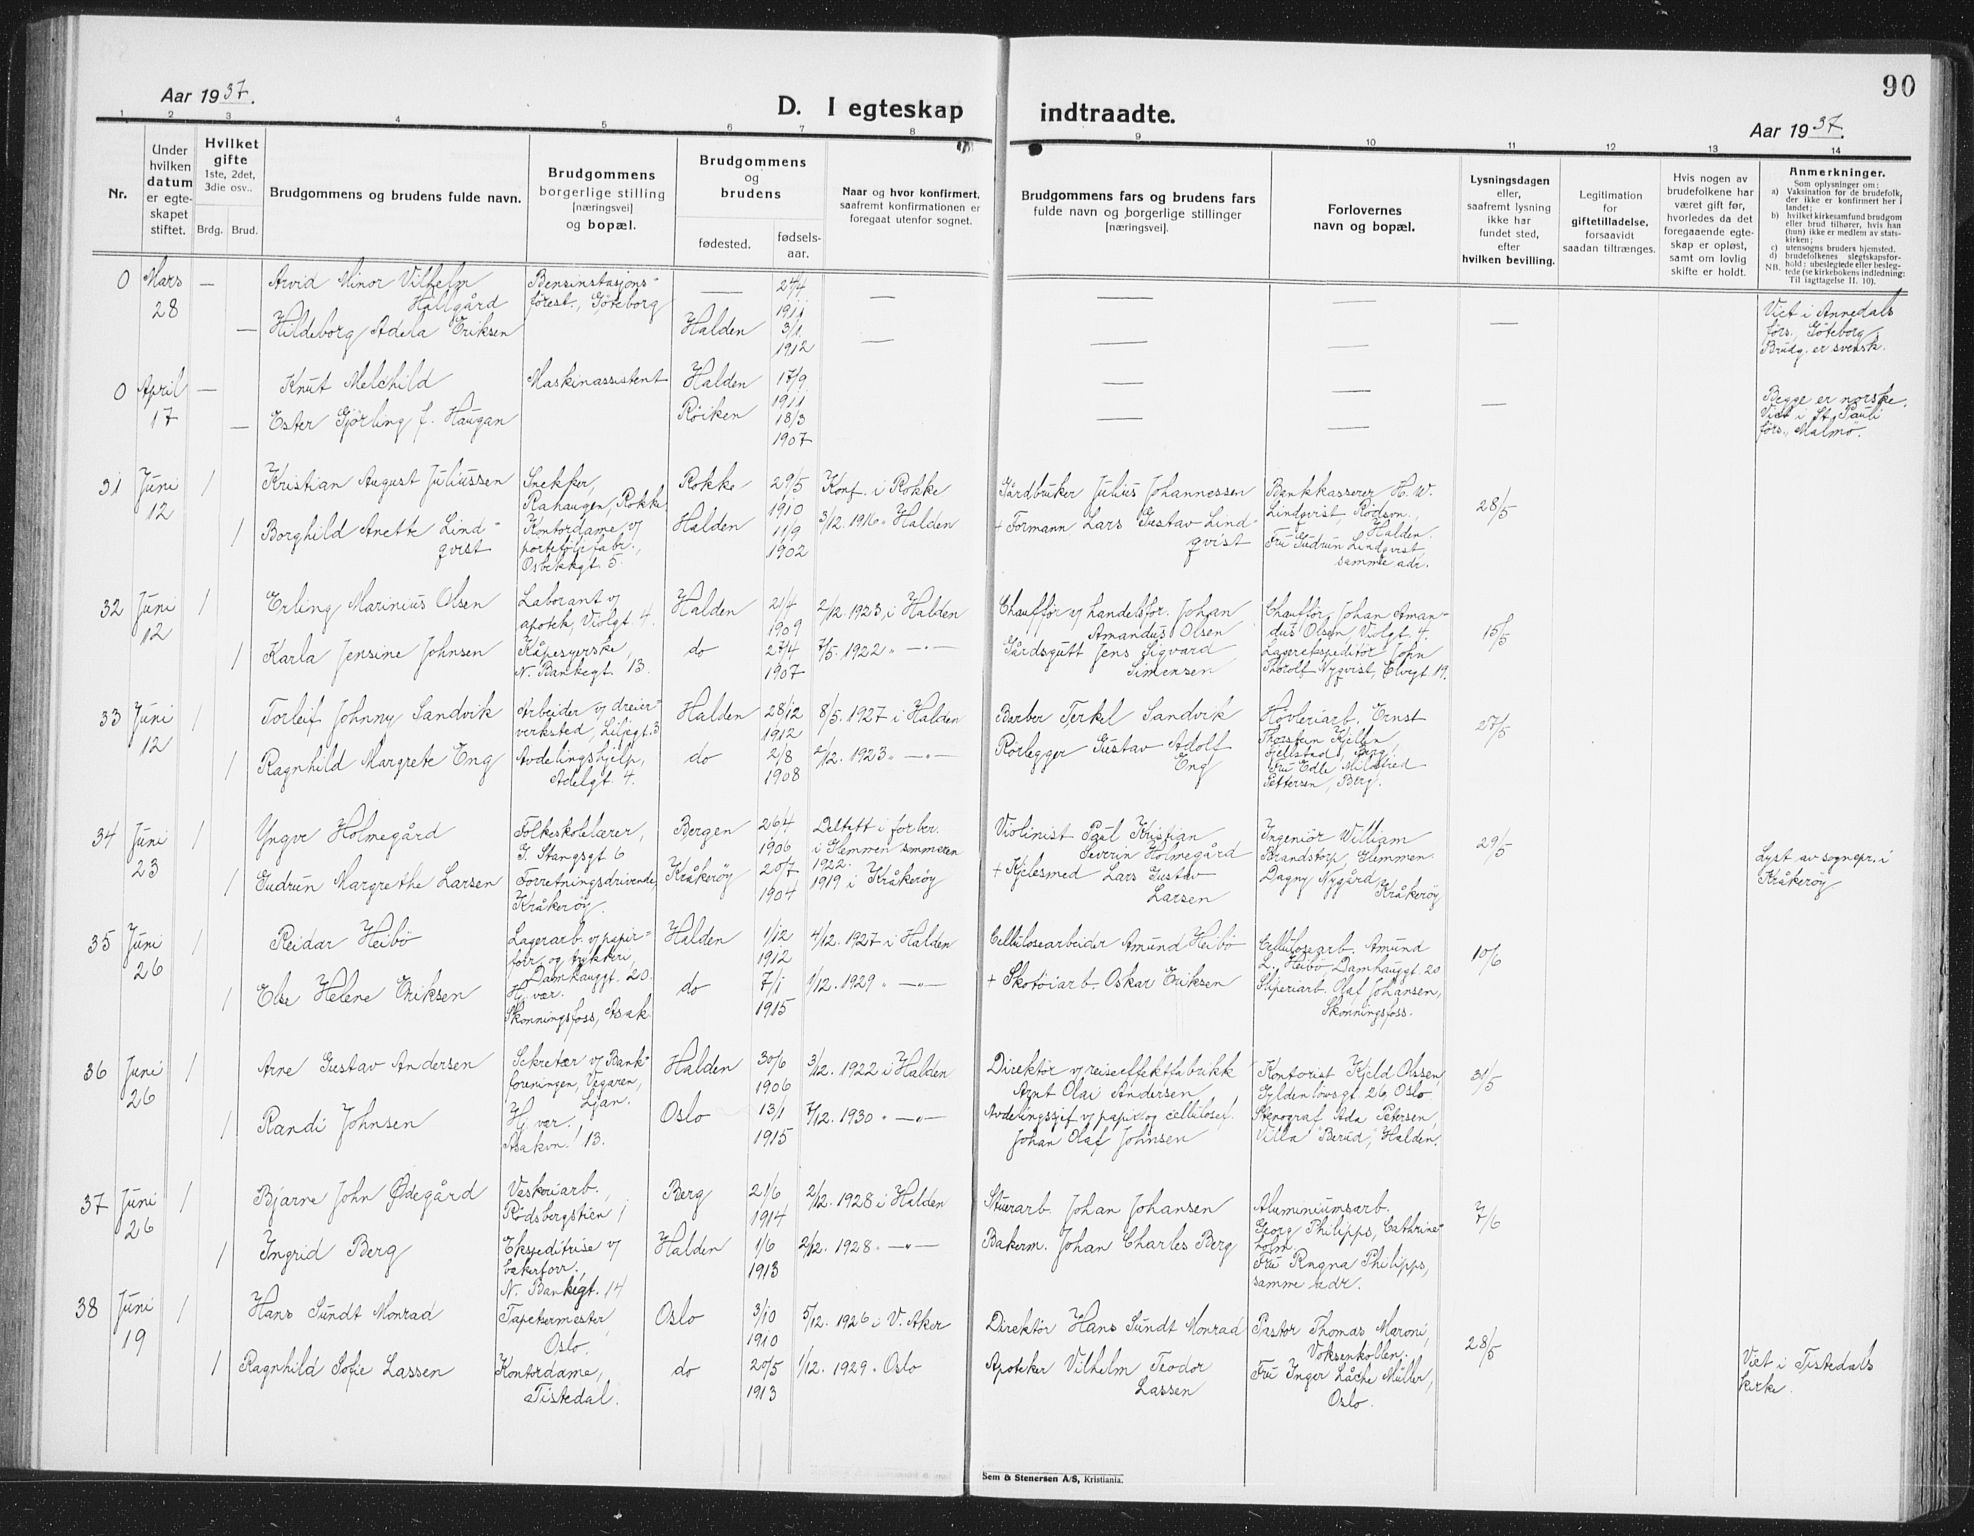 Aar 1937.
D. I egteskap indtraadte.
90
Aar 1937.
1 2 3 4 5 6 7 8 9 10 11 12 13 14
Nr.
Under
hvilken
datum
er egte-
skapet
stiftet.
Hvilket
gifte
1ste, 2det,
3die osv..
Brdg. Brud.
Brudgommens og brudens fulde navn.
Brudgommens
borgerlige stilling
[næringsvei]
og bopæl.
Brudgommens
og
brudens
fødested.
fødsels-
aar.
Naar og hvor konfirmert,
saafremt konfirmationen er
foregaat utenfor sognet.
Brudgommens fars og brudens fars
fulde navn og borgerlige stillinger
[næringsvei].
Forlovernes
navn og bopæl.
Lysningsdagen
eller,
saafremt lysning
ikke har
fundet sted,
efter
hvilken bevilling.
Legitimation
for
giftetilladelse,
forsaavidt
saadan tiltrænges.
Hvis nogen av
brudefolkene har
været gift før,
hvorledes da det
foregaaende egte-
skap er opløst,
samt om lovlig
skifte er holdt.
Anmerkninger.
Som oplysninger om:
a) Vaksination for de brudefolk,
der ikke er konfirmert her i
landet;
b) hvilket kirkesamfund brudgom
eller brud tilhører, hvis han
(hun) ikke er medlem av stats-
kirken;
c) utensogns bruders hjemsted.
d) brudefolkenes slegtskapsfor-
hold: ubeslegtede eller besleg-
tede (se kirkebokens indledning:
NB.
Til iagttagelse II. 10).
0 Mars
28
— Arvid Minor Vilhelm
Hallgård
Bensinstasjons-
førest., Göteborg
— 24/4
1911
— — —
— Hildeborg Adela Eriksen
Halden 3/1
1912
— — — —
Viet i Annedals
förs., Göteborg.
Brudg. er svensk.
0 April
17
— Knut Melchild
Maskinassistent
Halden 17/9
1911
— —
— Ester Gjörling f. Haugan
Röiken 18/3
1907
— — —
Begge er norske.
Viet i St. Pauli
förs., Malmö.
31 Juni
12
1 Kristian August Juliussen
Snekker,
Rahaugen, Rokke
Rokke 29/5
1910
Konf. i Rokke
Gårdbruker Julius Johannessen
Bankkasserer H. W.
Lindqvist, Rödsvn.,
Halden.
28/5
1 Borghild Anette Lind-
qvist
Kontordame v/
porteföljefabr.,
Osbekkgt. 5.
Halden 11/9
1902
3/12. 1916 „ Halden
+ Formann Lars Gustav Lind-
qvist
Fru Gudrun Lindqvist,
samme adr.
32 Juni
12
1 Erling Marinius Olsen
Laborant v/
apotek, Violgt. 4.
Halden 21/4
1909
2/12. 1923 i Halden
Chauffør v/ handelsfor. Johan
Amandus Olsen
Chauffør Johan Aman-
dus Olsen, Violgt. 4.
15/5
1 Karla Jensine Johnsen
Kåpesyerske,
N. Bankegt. 13.
do 27/4
1907
7/5. 1922 „ —„—
Gårdsgutt Jens Sigvard
Simensen
Lagerekspeditör John
Thorolf Nyqvist, Elvegt. 19.
33 Juni
12
1 Torleif Johnny Sandvik
Arbeider v/ dreier-
verksted, Liljegt. 3
Halden 28/12
1912
8/5. 1927 i Halden
Barber Terkel Sandvik
Hövleriarb. Ernst
Thorstein Kjellin,
Fjellstad, Berg.
27/5
1 Ragnhild Margrete Eng
Avdelingshjelp,
Adelgt. 4.
do 2/8
1908
2/12. 1923 „ —„—
Rörlegger Gustav Adolf
Eng
Fru Edle Mildfred
Pettersen, Berg.
34 Juni
23
1 Yngve Holmegård
Folkeskolelærer,
J. Stangsgt 6
Bergen 26/4
1906
Deltatt i forber.
i Glemmen sommeren
1922.
Violinist Paul Kristian
Severin Holmegård
Ingeniör William
Brandstorp, Glemmen.
29/5
1 Gudrun Margrethe Larsen
Forretningsdrivende,
Kråkeröy.
Kråkeröy 20/7
1904
1919 i Kråkeröy
+ Kjelesmed Lars Gustav
Larsen
Dagny Nygård,
Kråkeröy
Lyst av sognepr. i
Kråkeröy
35 Juni
26
1 Reidar Heibö
Lagerarb. v/ papir-
forr. og trykkeri,
Damhauggt. 20.
Halden 1/12
1912
4/12. 1927 i Halden
Cellulosearbeider Amund Heibö
Cellulosearb. Amund
L. Heibö, Damhauggt. 20
10/6
1 Else Helene Eriksen
Hj. vær.
Skonningsfoss, Asak.
do 7/1
1915
1/12. 1929 „ —„—
+ Skotöiarb. Oskar Eriksen
Sliperiarb. Olaf Johansen,
Skonningsfoss.
36 Juni
26
1 Arne Gustav Andersen
Sekretær v/ Bank-
foreningen, Vegaren,
Ljan.
Halden 30/6
1906
3/12. 1922 i Halden
Direktör v/ reiseeffektfabrikk
Arnt Olai Andersen
Kontorist Kjeld Olssen,
Gyldenlövsgt. 26, Oslo
31/5
1 Randi Johnsen
Hj. vær.
Asakvn. 13.
Oslo 13/1
1915
7/12. 1930 „ —„—
Avdelingssjef v/ papir og cellulosef.
Johan Olaf Johnsen
Stenograf Ada Petersen,
Villa "Berud," Halden.
37 Juni
26
1 Bjarne John Ødegård
Veskeriarb.,
Rödsbergstien 1
Berg 21/6
1914
2/12. 1928 i Halden
Stuerarb. Johan Johansen
Aluminiumsarb.
Georg Philipps, Cathrine-
holm
7/6
1 Ingrid Berg
Ekspeditrise v/
bakerforr.,
N. Bankegt. 14
Halden 1/6
1913
2/12. 1928 „ —„—
Bakerm. Johan Charles Berg
Fru Ragna Philipps,
samme adr.
38 Juni
19
1 Hans Sundt Monrad
Tapetsermester,
Oslo.
Oslo 3/10
1910
5/12. 1926 i V. Aker
Direktör Hans Sundt Monrad
Pastor Thomas Maroni,
Voksenkollen.
28/5
1 Ragnhild Sofie Lassen
Kontordame,
Tistedal.
do 20/5
1913
1/12. 1929 „ Oslo
Apoteker Vilhelm Teodor
Lassen
Fru Inger Låche Müller,
Oslo.
Viet i Tistedals
kirke.
Sem & Stenersen A/S, Kristiania.